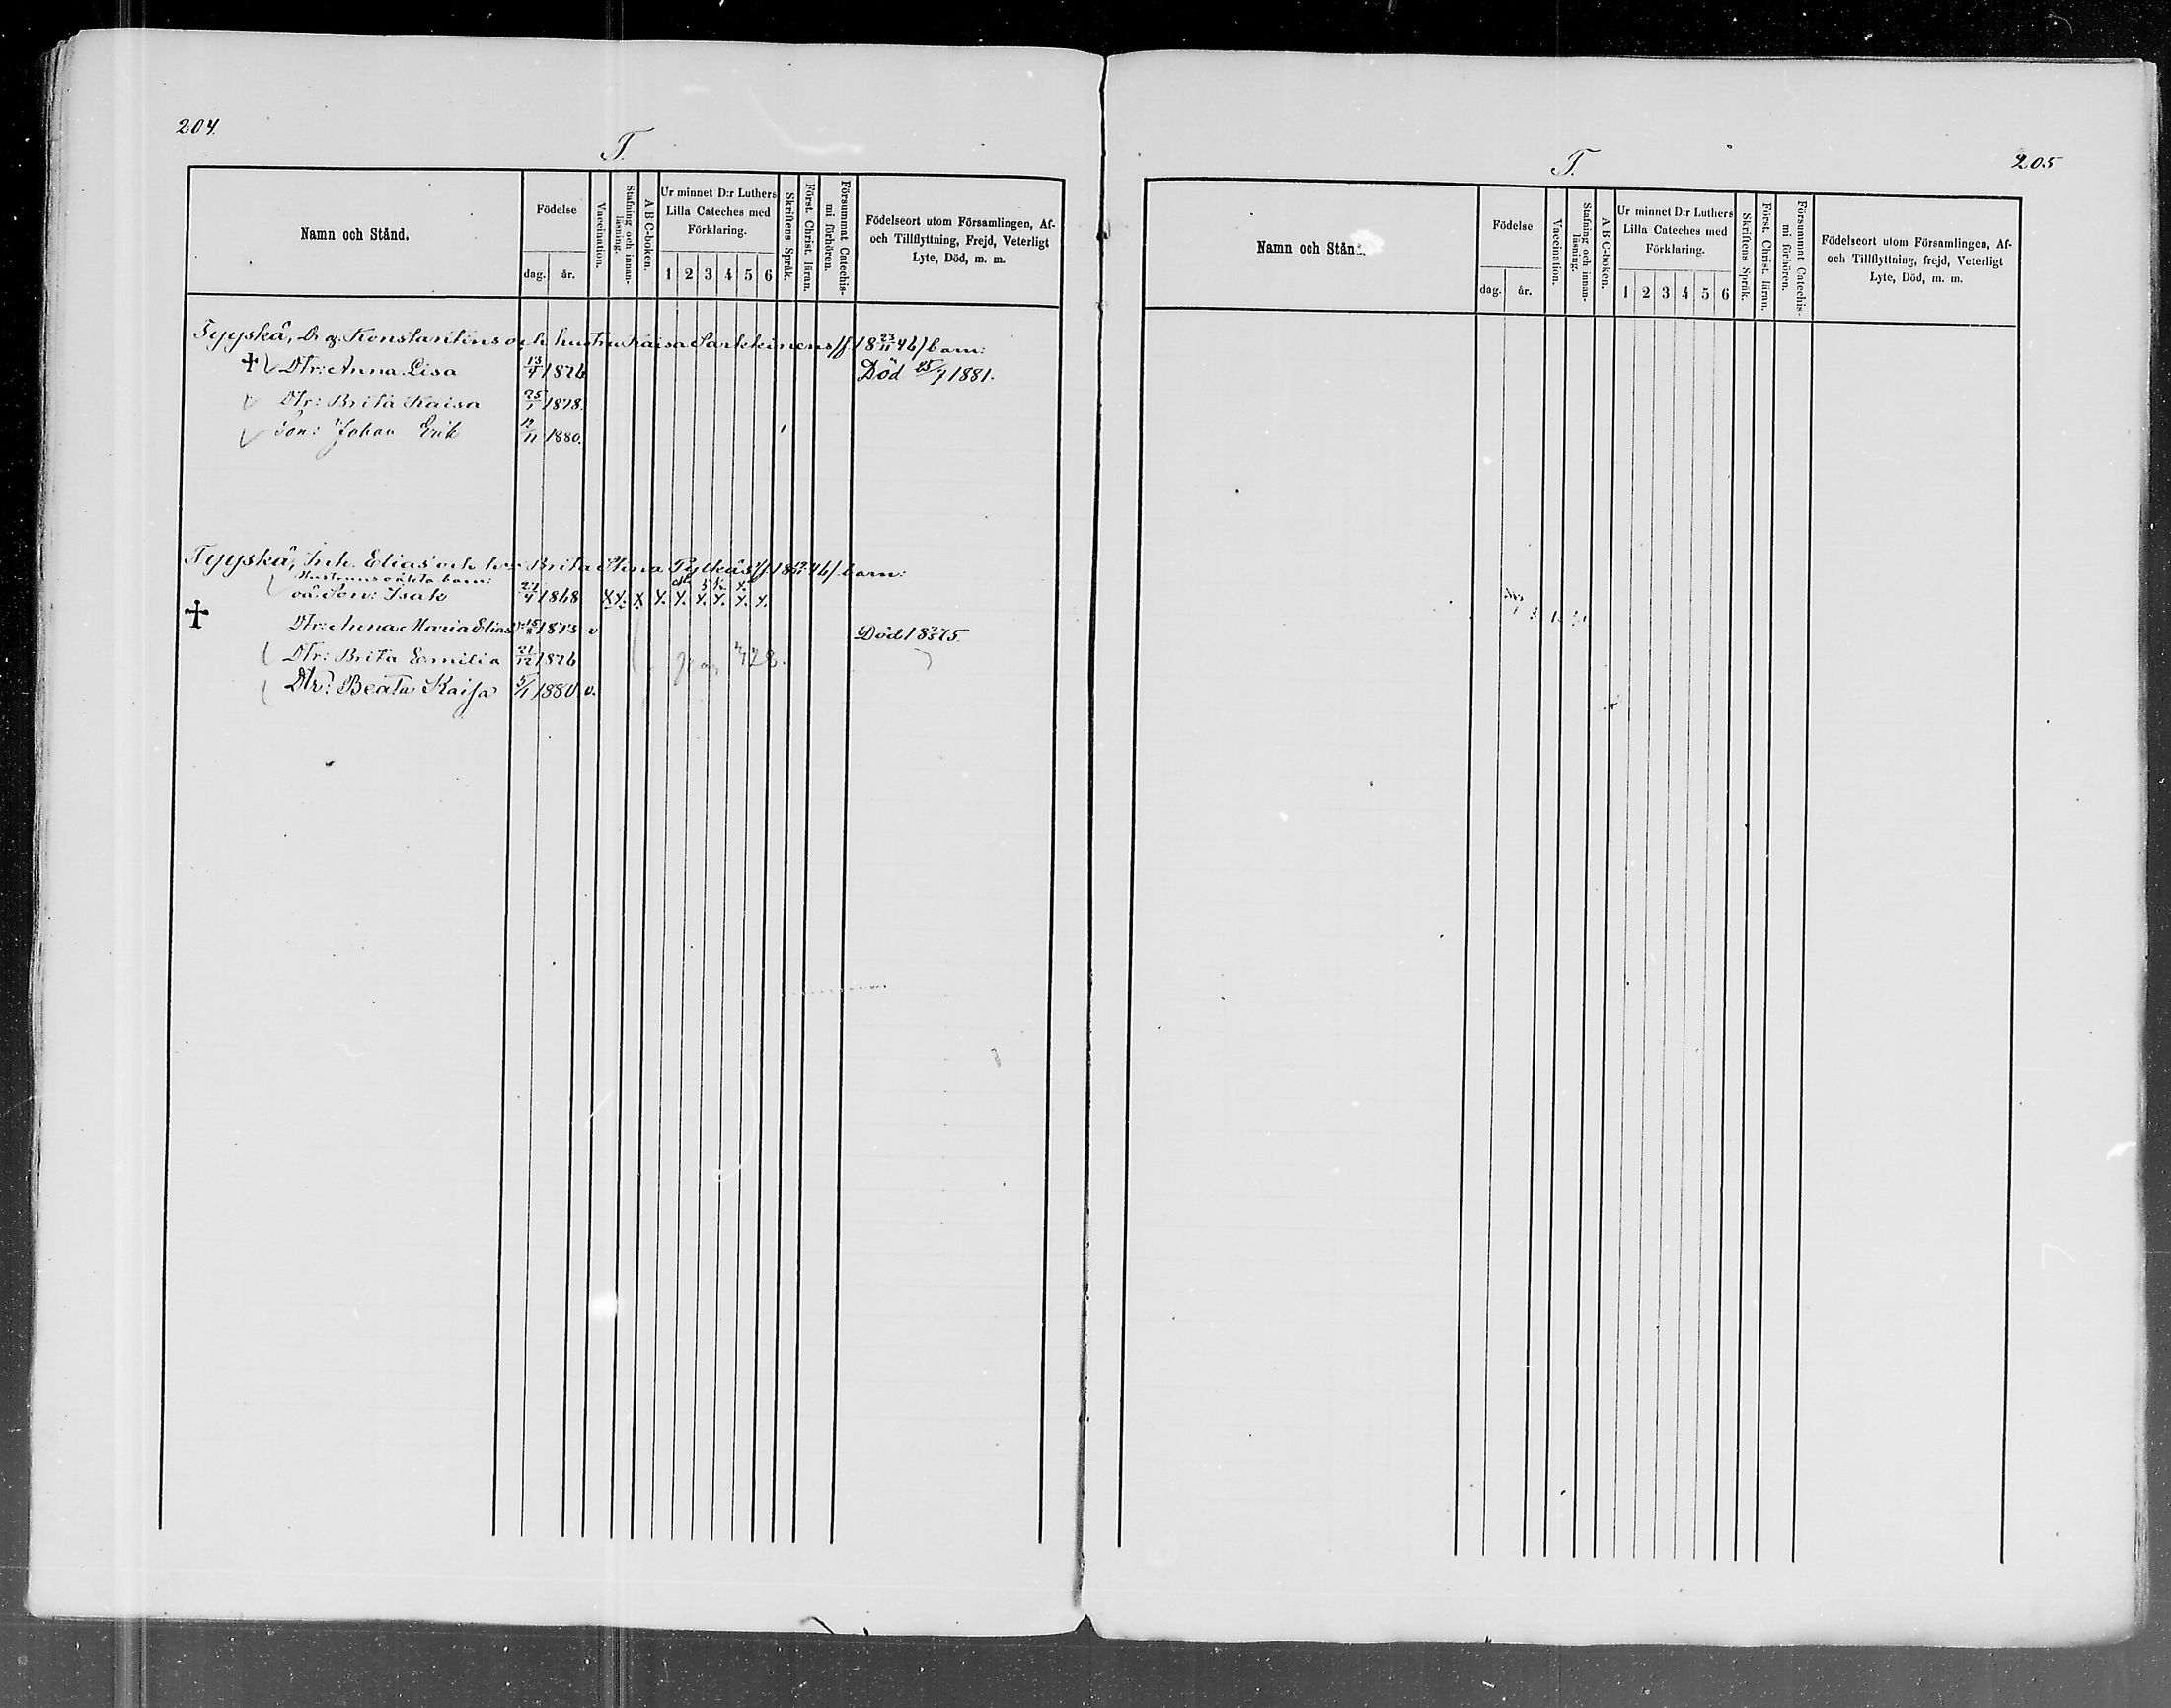 204.
T.
Namn och Stånd.
Födelse
dag.
år.
Vaccination.
Stafning och innan-
läsning.
A B C-boken.
Ur minnet D:r Luthers
Lilla Cateches med
Förklaring.
1 2 3 4 5 6
Skriftens Språk.
Först. Christ. läran.
Försummat Catechis-
mi förhören.
Födelseort utom Församlingen, Af-
och Tillflyttning, Frejd, Veterligt
Lyte, Död, m. m.
Tyyskä, Dr g. Konstantins och hustru Kaisa Sarkkinens /f 18 23/11 46/ barn:
† Dtr: Anna Lisa 13/4 1876 Död 25/7 1881.
Dtr: Brita Kaisa 25/1 1878.
Son: Johan Erik 12/11 1880.
Tyyskä, Inh. Elias och h:u Brita Stina Pylkäs /f 18 46/ barn:
Hustruns oäkta barn:
oä. Son: Isak 27/4 1868 X X. X X. X. X. X. X. X.
† Dtr: Anna Maria Elias 15/8 1873 v Död 18 75.
Dtr: Brita Emilia 21/12 1876
Dtr: Beata Kaisa 5/1 1880 v.
205
T.
Namn och Stån
Födelse
dag.
år.
Vaccination.
Stafning och innan-
läsning.
A B C-boken.
Ur minnet D:r Luthers
Lilla Cateches med
Förklaring.
1 2 3 4 5 6
Skriftens Språk.
Först. Christ. läran.
Försummat Catechis-
mi förhören.
Födelseort utom Församlingen, Af-
och Tillflyttning, frejd, Veterligt
Lyte, Död, m. m.